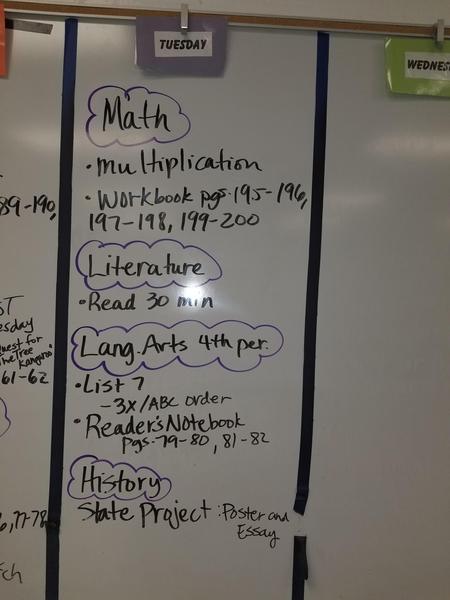 TUESDAY
WEDNES
Math
• multiplication
• Workbook pgs. 195-196,
197-198, 199-200
Literature
• Read 30 min
Lang. Arts 4th per.
• List 7
- 3X/ABC order
• Reader's Notebook
pgs. 79-80, 81-82
History
State Project: Poster and
Essay
89-190,
ST
esday
quest for
the Tree
Kangaroo"
61-62
6, 77-78